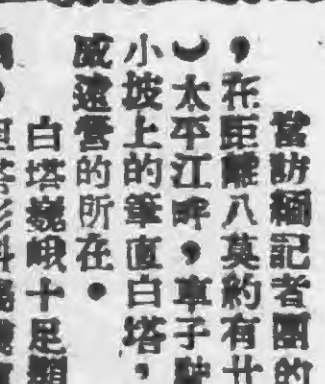 當訪緬記者團的
，在距離八莫約有廿
）太平江畔，車子駛
小坡上的筆直白塔，
威遠營的所在。
白塔巍峨十足顯